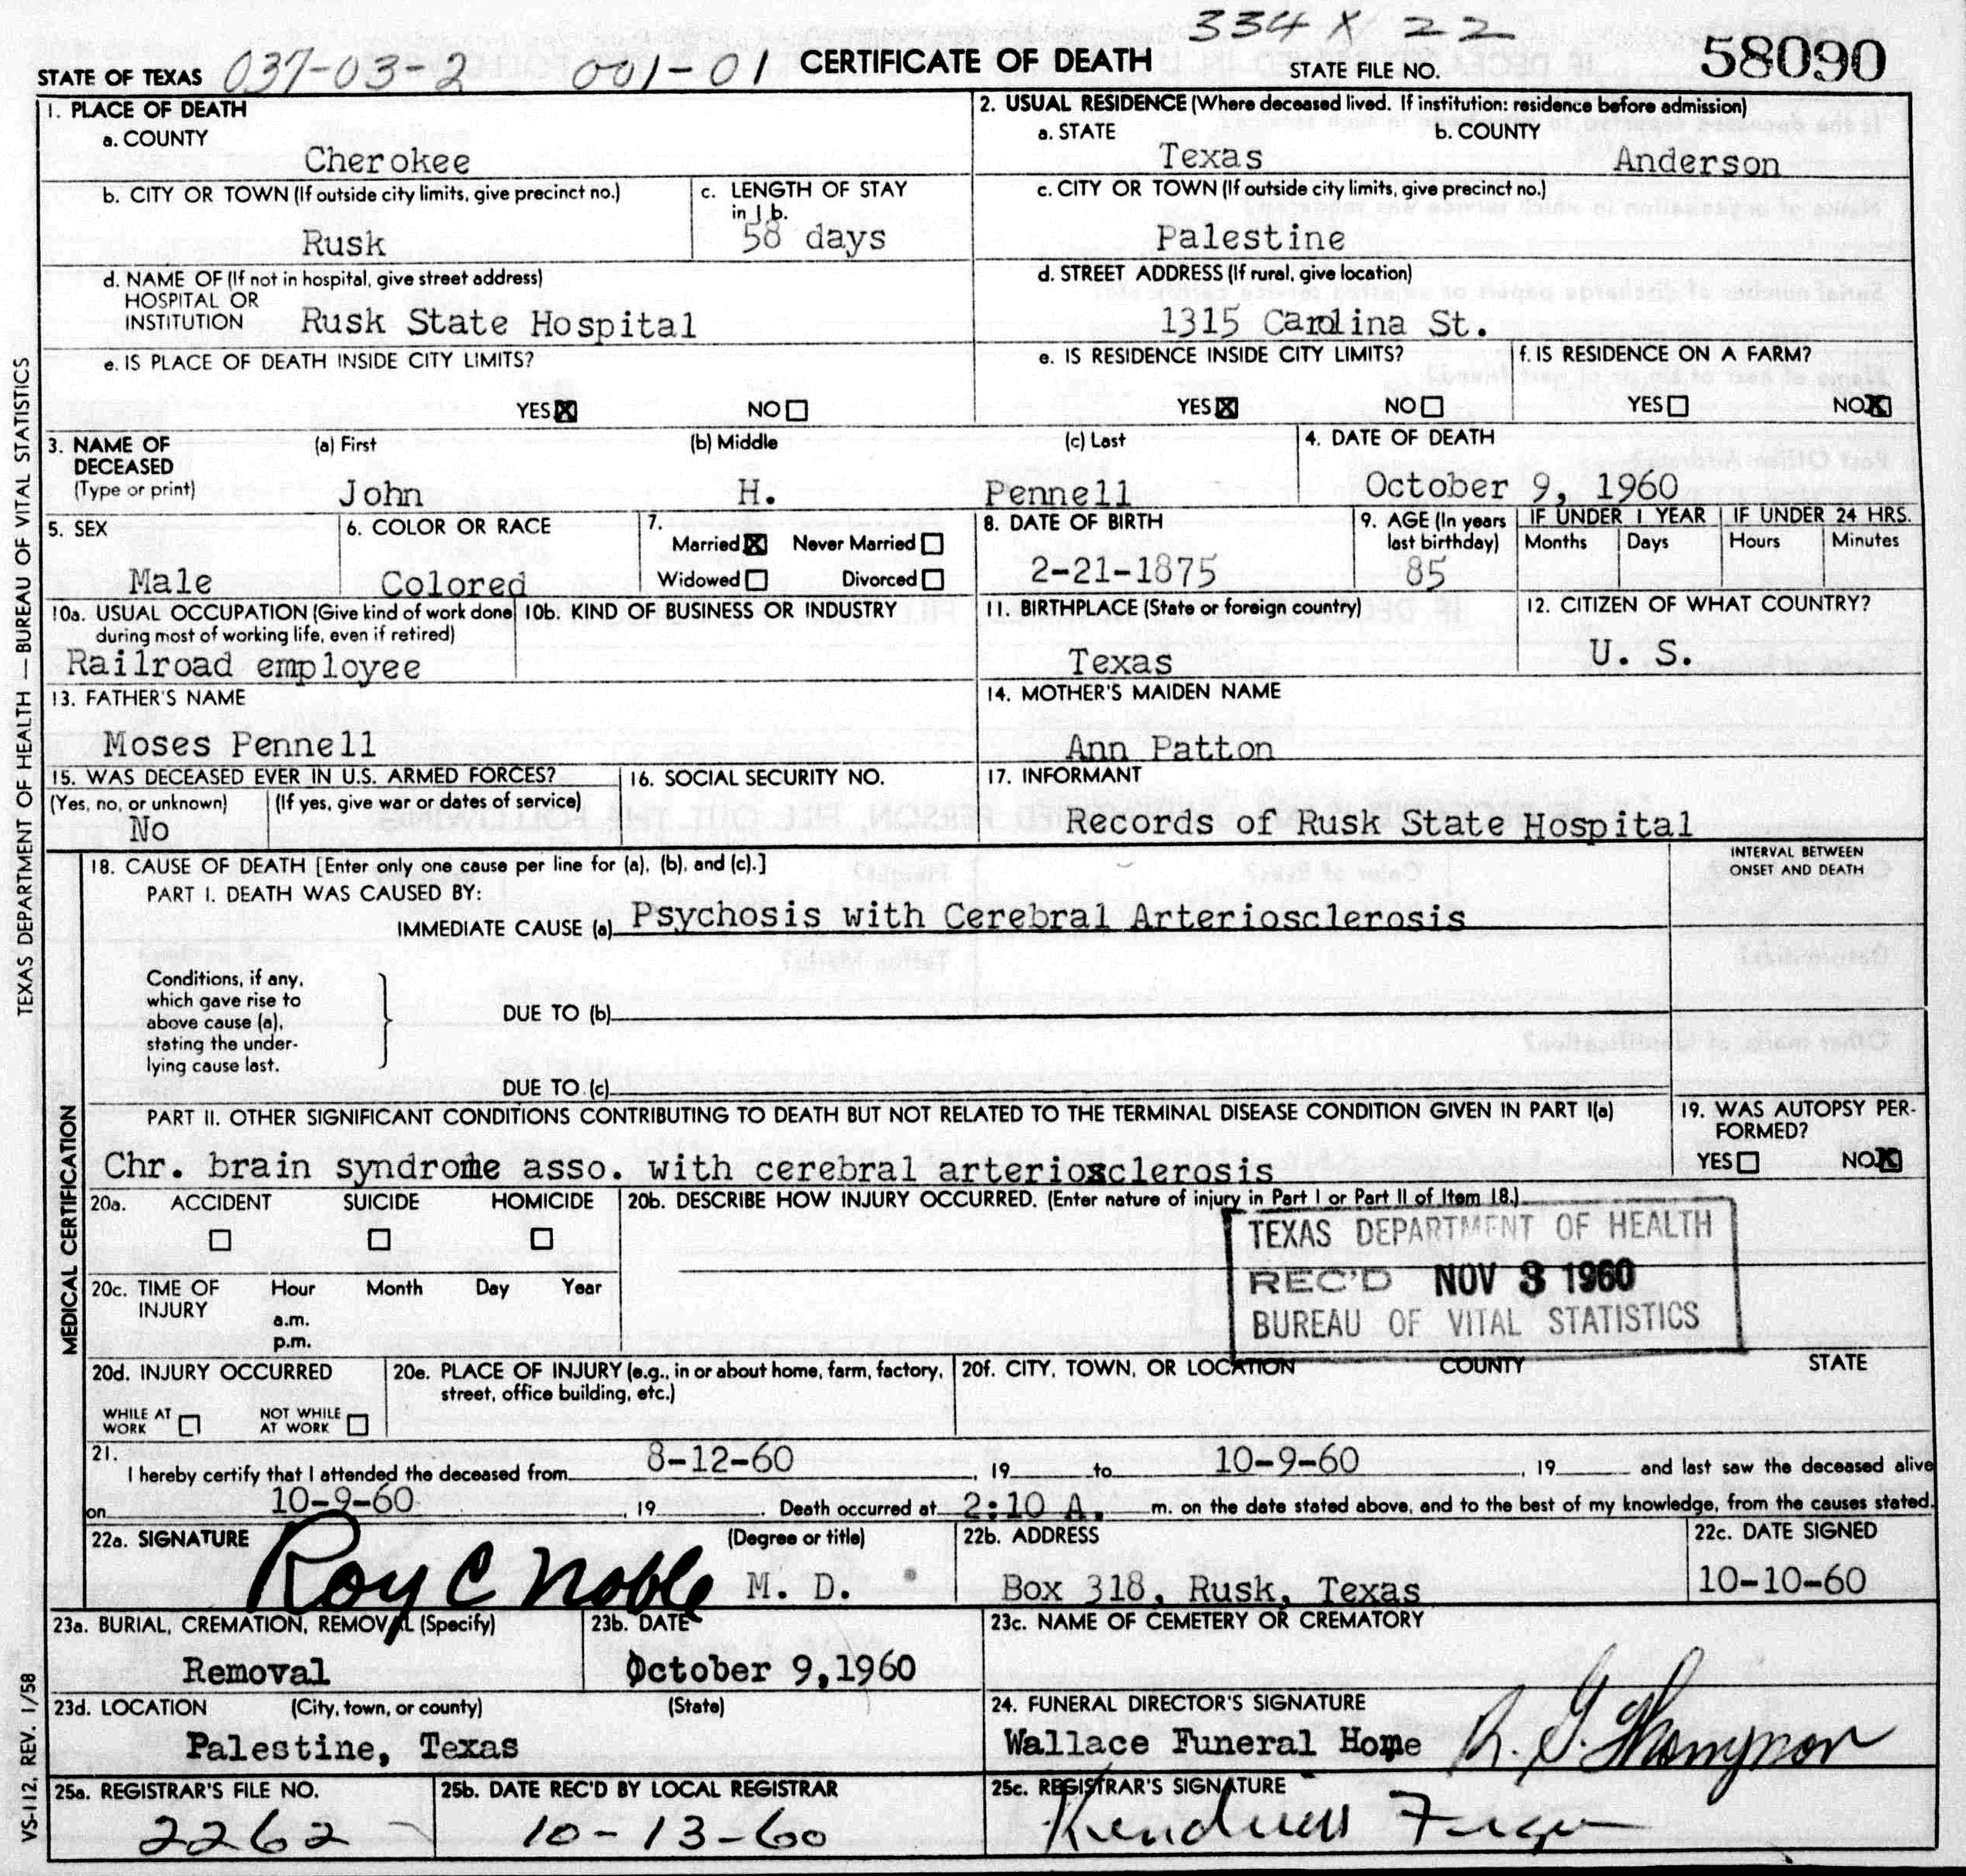 334 X 22
STATE OF TEXAS 037-03-2 001-01 CERTIFICATE OF DEATH STATE FILE NO. 58090
1. PLACE OF DEATH
a. COUNTY
Cherokee
2. USUAL RESIDENCE (Where deceased lived. If institution: residence before admission)
a. STATE
Texas
b. COUNTY
Anderson
b. CITY OR TOWN (If outside city limits, give precinct no.)
Rusk
c. LENGTH OF STAY
in 1 b.
58 days
c. CITY OR TOWN (If outside city limits, give precinct no.)
Palestine
d. NAME OF (If not in hospital, give street address)
HOSPITAL OR
INSTITUTION Rusk State Hospital
d. STREET ADDRESS (If rural, give location)
1315 Carolina St.
e. IS PLACE OF DEATH INSIDE CITY LIMITS?
YES X NO
e. IS RESIDENCE INSIDE CITY LIMITS?
YES X NO
f. IS RESIDENCE ON A FARM?
YES NO X
3. NAME OF
DECEASED
(Type or print)
(a) First
John
(b) Middle
H.
(c) Last
Pennell
4. DATE OF DEATH
October 9, 1960
5. SEX
Male
6. COLOR OR RACE
Colored
7.
Married X Never Married
Widowed Divorced
8. DATE OF BIRTH
2-21-1875
9. AGE (In years
last birthday)
85
IF UNDER 1 YEAR
Months Days
IF UNDER 24 HRS.
Hours Minutes
10a. USUAL OCCUPATION (Give kind of work done
during most of working life, even if retired)
Railroad employee
10b. KIND OF BUSINESS OR INDUSTRY
11. BIRTHPLACE (State or foreign country)
Texas
12. CITIZEN OF WHAT COUNTRY?
U. S.
13. FATHER'S NAME
Moses Pennell
14. MOTHER'S MAIDEN NAME
Ann Patton
15. WAS DECEASED EVER IN U.S. ARMED FORCES?
(Yes, no, or unknown) (If yes, give war or dates of service)
No
16. SOCIAL SECURITY NO.
17. INFORMANT
Records of Rusk State Hospital
18. CAUSE OF DEATH [Enter only one cause per line for (a), (b), and (c).]
INTERVAL BETWEEN
ONSET AND DEATH
PART I. DEATH WAS CAUSED BY:
IMMEDIATE CAUSE (a) Psychosis with Cerebral Arteriosclerosis
Conditions, if any,
which gave rise to
above cause (a),
stating the under-
lying cause last.
DUE TO (b)
DUE TO (c)
PART II. OTHER SIGNIFICANT CONDITIONS CONTRIBUTING TO DEATH BUT NOT RELATED TO THE TERMINAL DISEASE CONDITION GIVEN IN PART I(a)
Chr. brain syndrome asso. with cerebral arteriosclerosis
19. WAS AUTOPSY PER-
FORMED?
YES NO X
20a. ACCIDENT SUICIDE HOMICIDE
20b. DESCRIBE HOW INJURY OCCURRED. (Enter nature of injury in Part I or Part II of Item 18.)
TEXAS DEPARTMENT OF HEALTH
REC'D NOV 3 1960
BUREAU OF VITAL STATISTICS
20c. TIME OF
INJURY
Hour Month Day Year
a.m.
p.m.
20d. INJURY OCCURRED
WHILE AT
WORK
NOT WHILE
AT WORK
20e. PLACE OF INJURY (e.g., in or about home, farm, factory,
street, office building, etc.)
20f. CITY, TOWN, OR LOCATION COUNTY STATE
21.
I hereby certify that I attended the deceased from 8-12-60, 19 to 10-9-60, 19 and last saw the deceased alive
on 10-9-60, 19. Death occurred at 2:10 A. m. on the date stated above, and to the best of my knowledge, from the causes stated.
22a. SIGNATURE (Degree or title)
Roy C Noble M. D.
22b. ADDRESS
Box 318, Rusk, Texas
22c. DATE SIGNED
10-10-60
23a. BURIAL, CREMATION, REMOVAL (Specify)
Removal
23b. DATE
October 9,1960
23c. NAME OF CEMETERY OR CREMATORY
23d. LOCATION (City, town, or county) (State)
Palestine, Texas
24. FUNERAL DIRECTOR'S SIGNATURE
Wallace Funeral Home R. G. Thompson
25a. REGISTRAR'S FILE NO.
2262
25b. DATE REC'D BY LOCAL REGISTRAR
10-13-60
25c. REGISTRAR'S SIGNATURE
TEXAS DEPARTMENT OF HEALTH — BUREAU OF VITAL STATISTICS
MEDICAL CERTIFICATION
VS-112, REV. 1/58